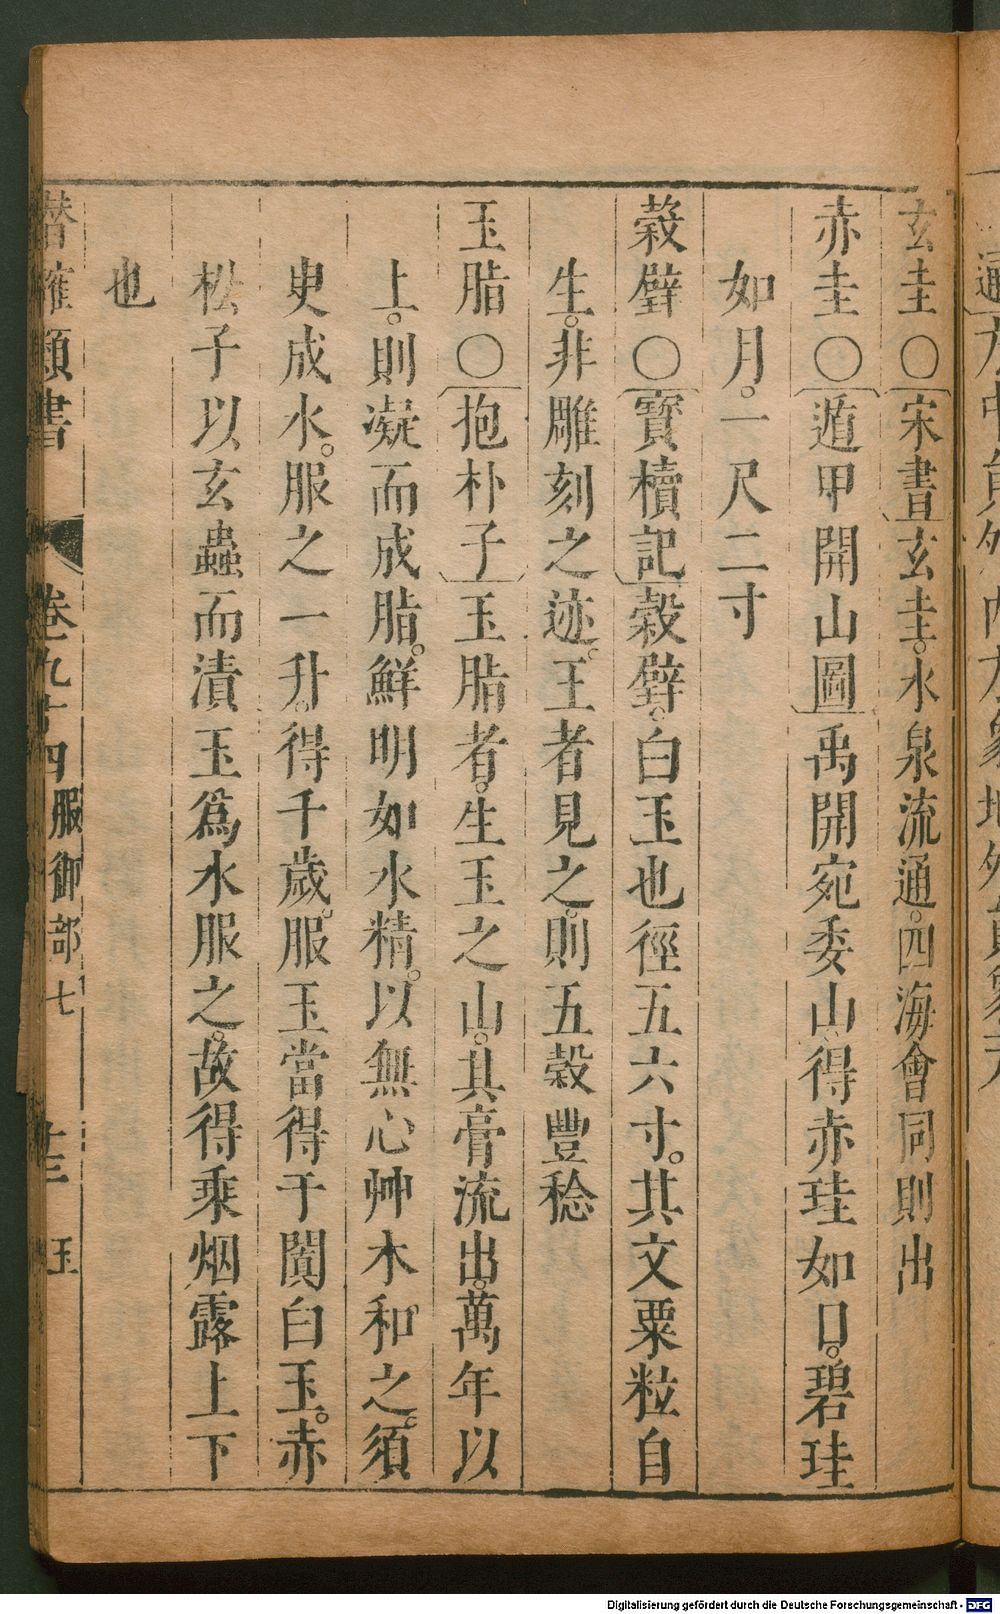 玄圭〇宋書玄圭。水泉流通。四海會同則出
赤圭〇遁甲開山圖禹開宛委山。得赤珪如日。碧珪
如月。一尺二寸
穀璧〇寶櫝記穀璧。白玉也徑五六寸。其文粟粒自
生。非雕刻之迹。王者見之。則五穀豐稔
玉脂〇抱朴子玉脂者。生玉之山。其膏流出。萬年以
上。則凝而成脂。鮮明如水精。以無心艸木。和之。須
臾成水。服之一升。得千歲。服玉當得于闐白玉。赤
松子以玄蟲而漬玉爲水服之。故得乘烟露上下
也
潜確類書 卷九十四 服御部七 十三 玉
Digitalisierung gefördert durch die Deutsche Forschungsgemeinschaft - DFG